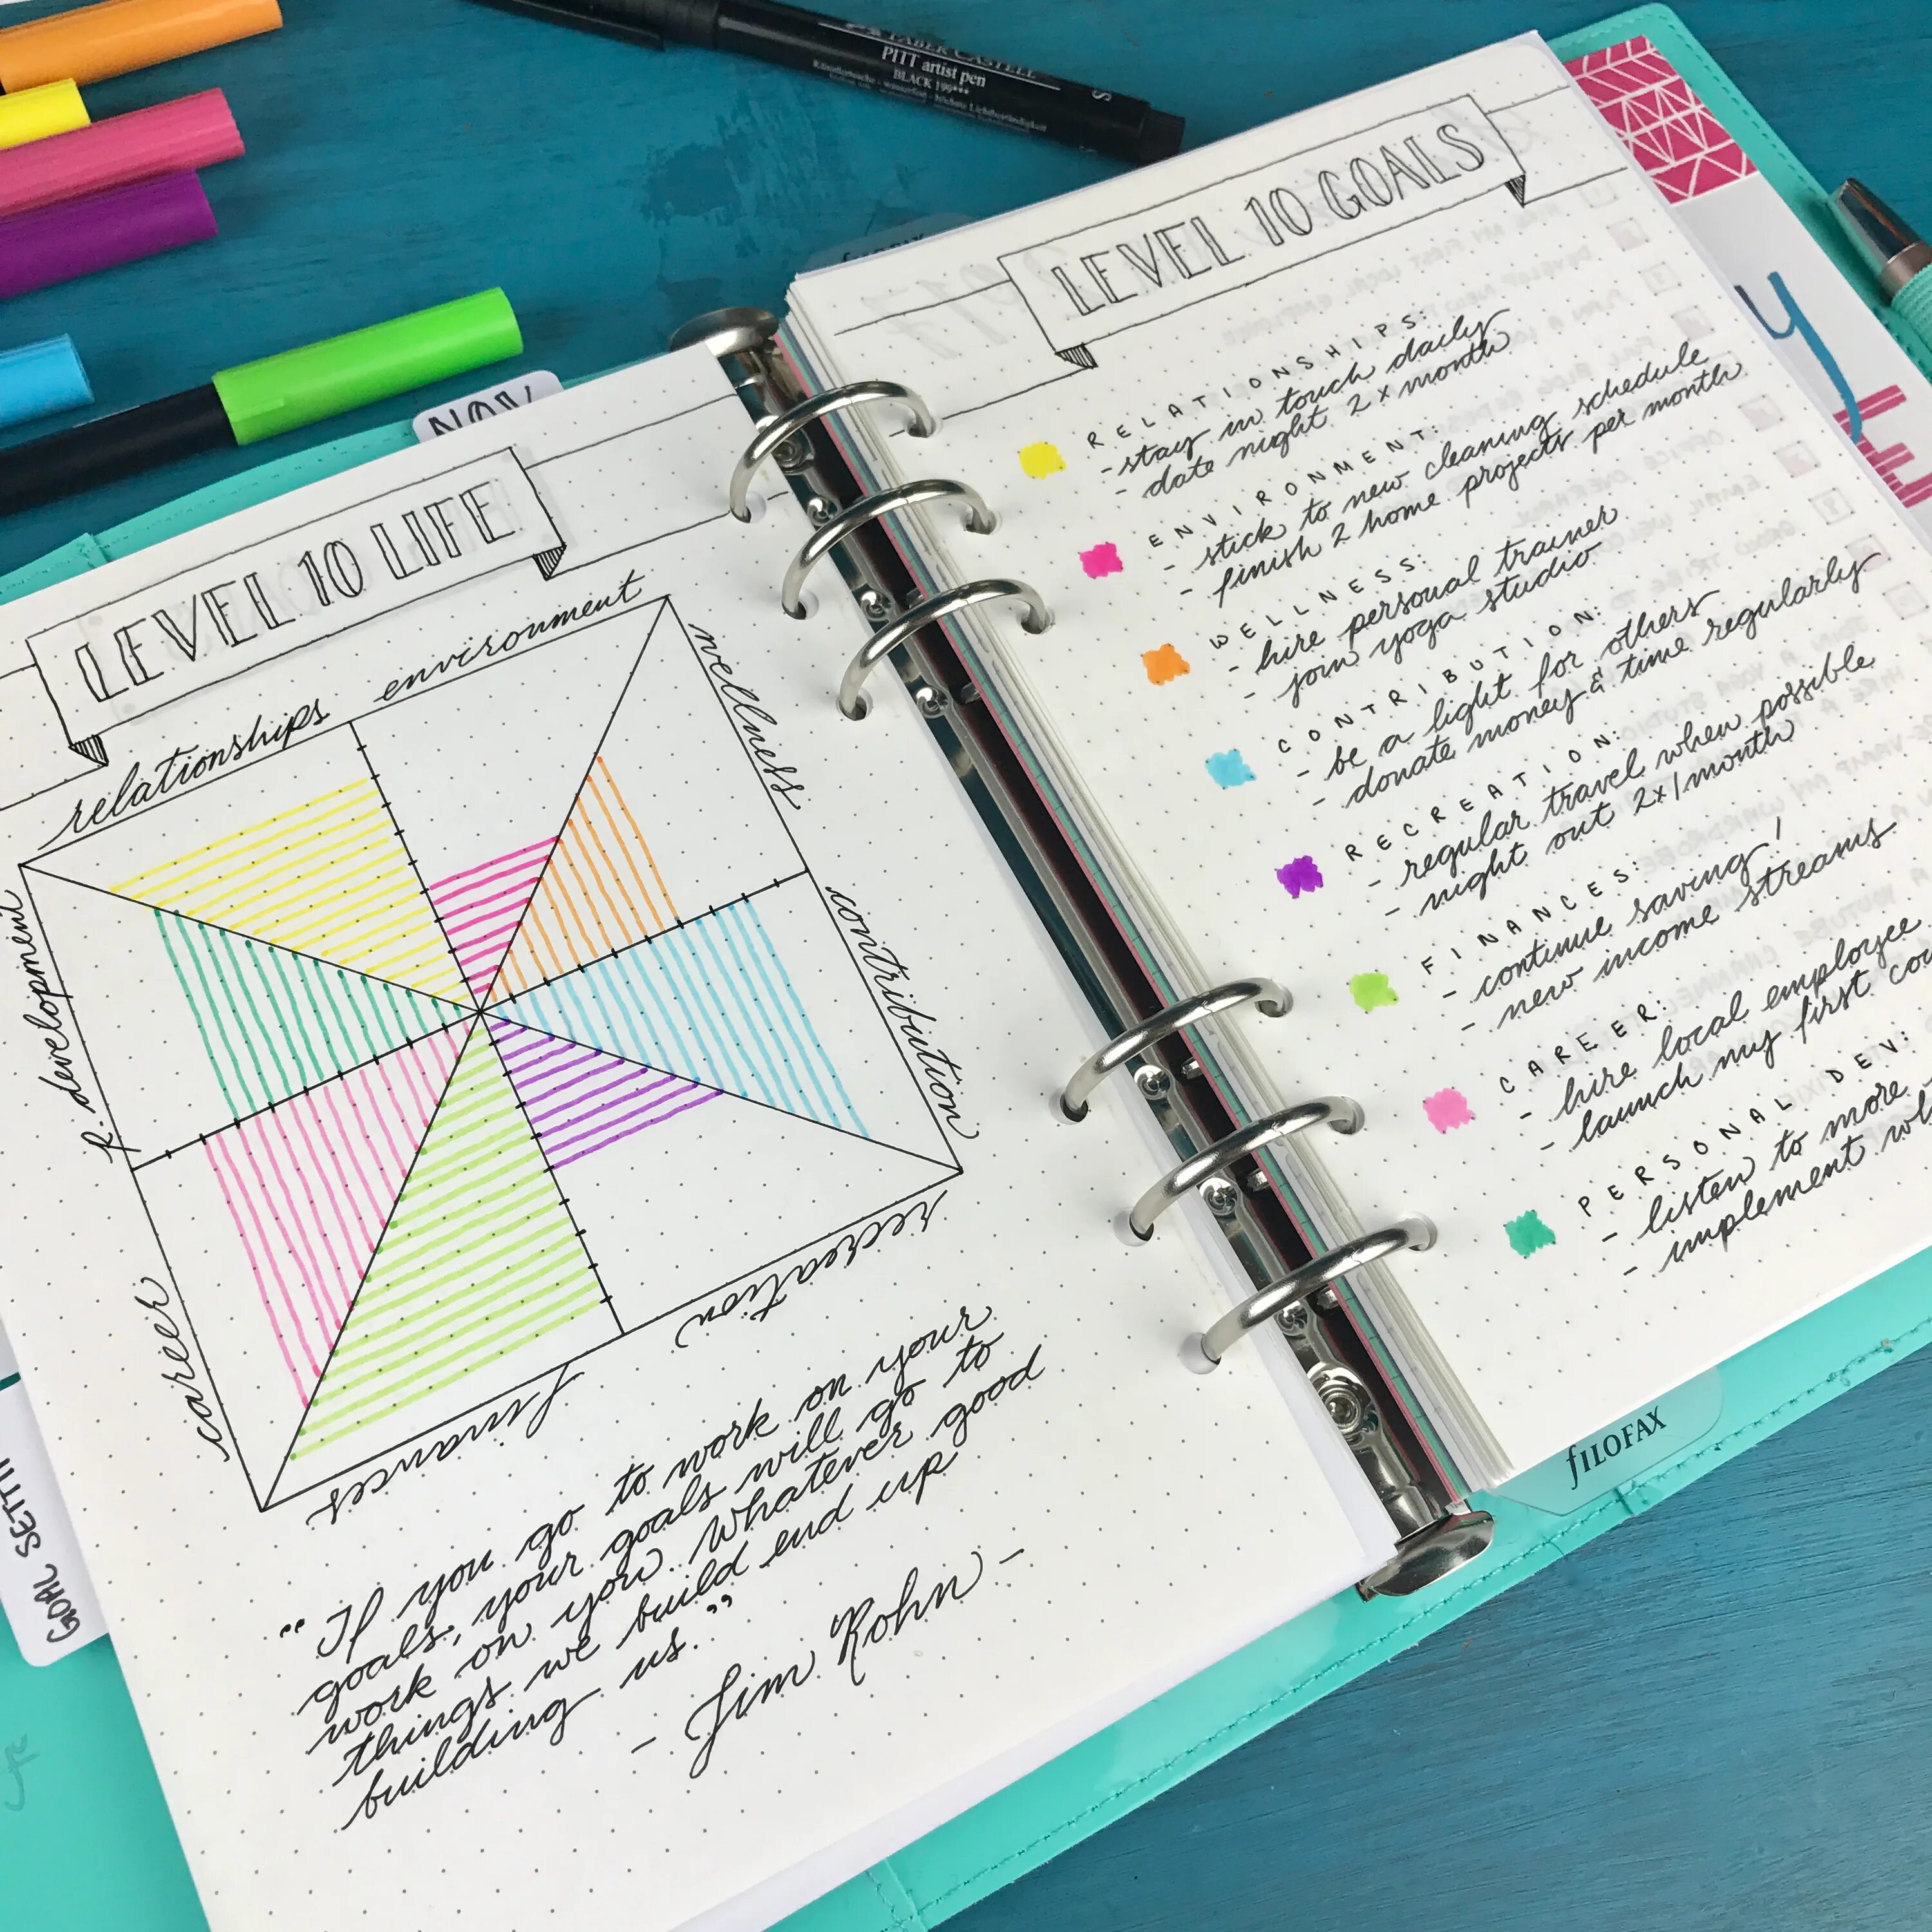 FABER-CASTELL
PITT artist pen
BLACK 199***
S
NOV
LEVEL 10 LIFE
relationships
environment
wellness
contribution
recreation
finances
career
p. development
"If you go to work on your
goals, your goals will go to
work on you. Whatever good
things we build end up
building us."
- Jim Rohn -
GOAL SETTI
LEVEL 10 GOALS
RELATIONSHIPS:
- stay in touch daily
- date night 2x month
ENVIRONMENT:
- stick to new cleaning schedule
- finish 2 home projects per month
WELLNESS:
- hire personal trainer
- join yoga studio
CONTRIBUTION:
- be a light for others
- donate money & time regularly
RECREATION:
- regular travel when possible
- night out 2x/month
FINANCES:
- continue saving!
- new income streams
CAREER:
- hire local employee
- launch my first cou
PERSONAL DEV:
- listen to more
- implement wh
y
fILOFAX